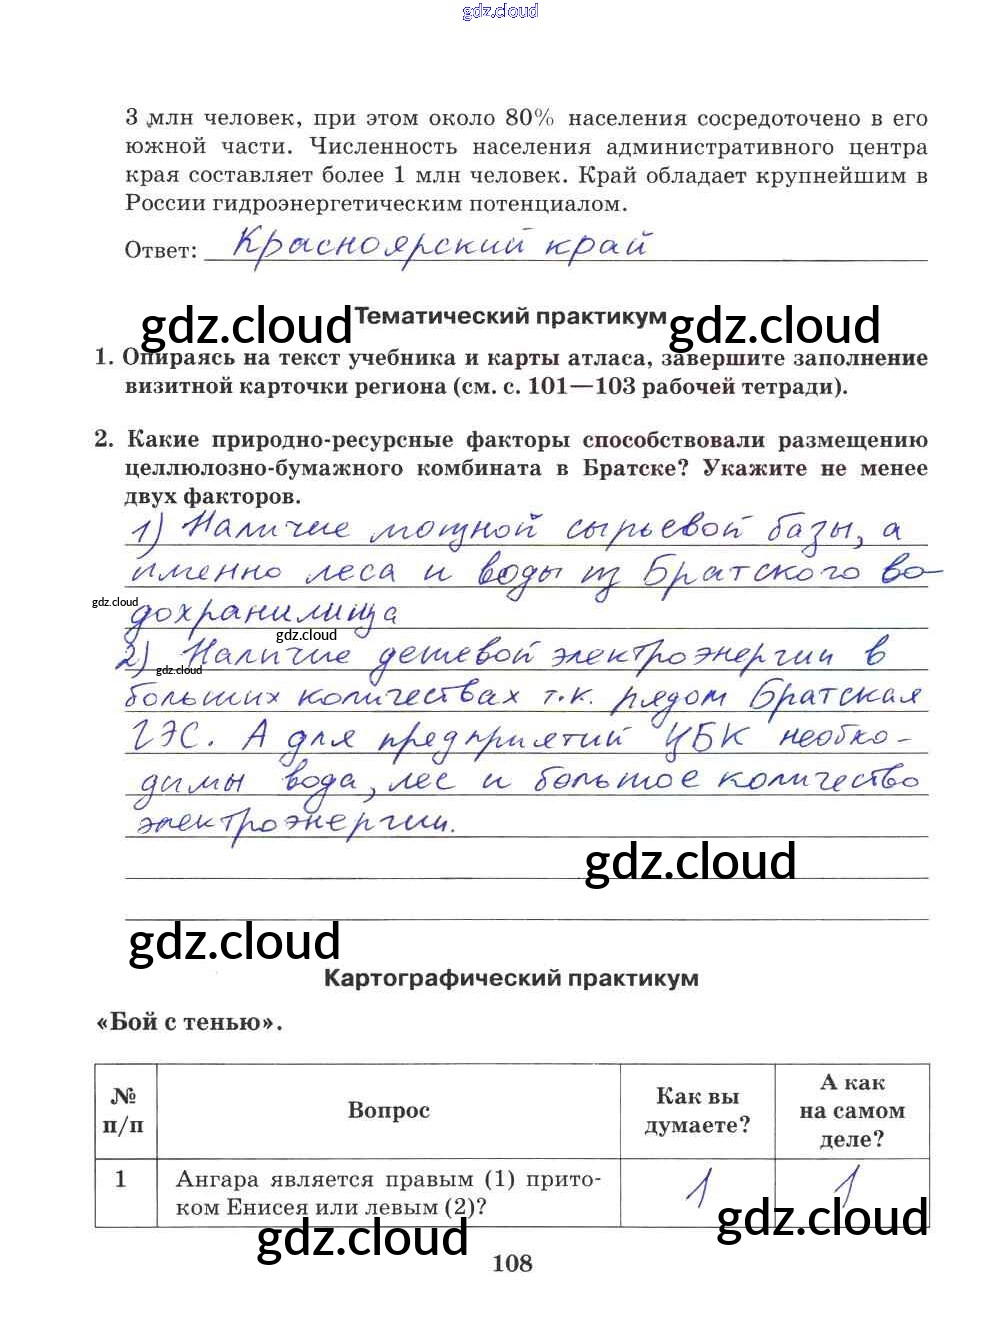 gdz.cloud
3 млн человек, при этом около 80% населения сосредоточено в его
южной части. Численность населения административного центра
края составляет более 1 млн человек. Край обладает крупнейшим в
России гидроэнергетическим потенциалом.
Ответ: Красноярский край
gdz.cloud Тематический практикум gdz.cloud
1. Опираясь на текст учебника и карты атласа, завершите заполнение
визитной карточки региона (см. с. 101—103 рабочей тетради).
2. Какие природно-ресурсные факторы способствовали размещению
целлюлозно-бумажного комбината в Братске? Укажите не менее
двух факторов.
1) Наличие мощной сырьевой базы, а
именно леса и воды из Братского во-
gdz.cloud
дохранилища
gdz.cloud
2) Наличие дешевой электроэнергии в
gdz.cloud
больших количествах т.к. рядом Братская
ГЭС. А для предприятий ЦБК необхо-
димы вода, лес и большое количество
электроэнергии.
gdz.cloud
gdz.cloud
Картографический практикум
«Бой с тенью».
№ п/п
Вопрос
Как вы думаете?
А как на самом деле?
1
Ангара является правым (1) прито-
ком Енисея или левым (2)?
1
1
gdz.cloud
gdz.cloud
108